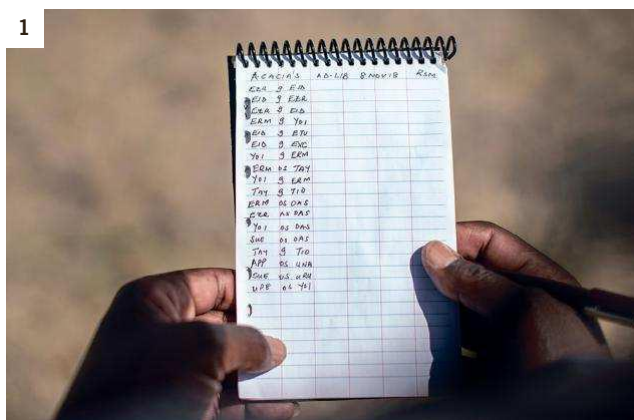 1
ACACIA'S AD-LIB 8 NOV 18 RSM
EZR g EID
EID g EZR
EZR g EID
ERM g YOI
EID g ETU
EID g
YOI g ERM
ERM os TAY
YOI g ERM
TAY g TIO
ERM os DAS
EZR AS DAS
YOI os DAS
SHE os DAS
TAY g TIO
APP os UNA
SHE os
os YOI